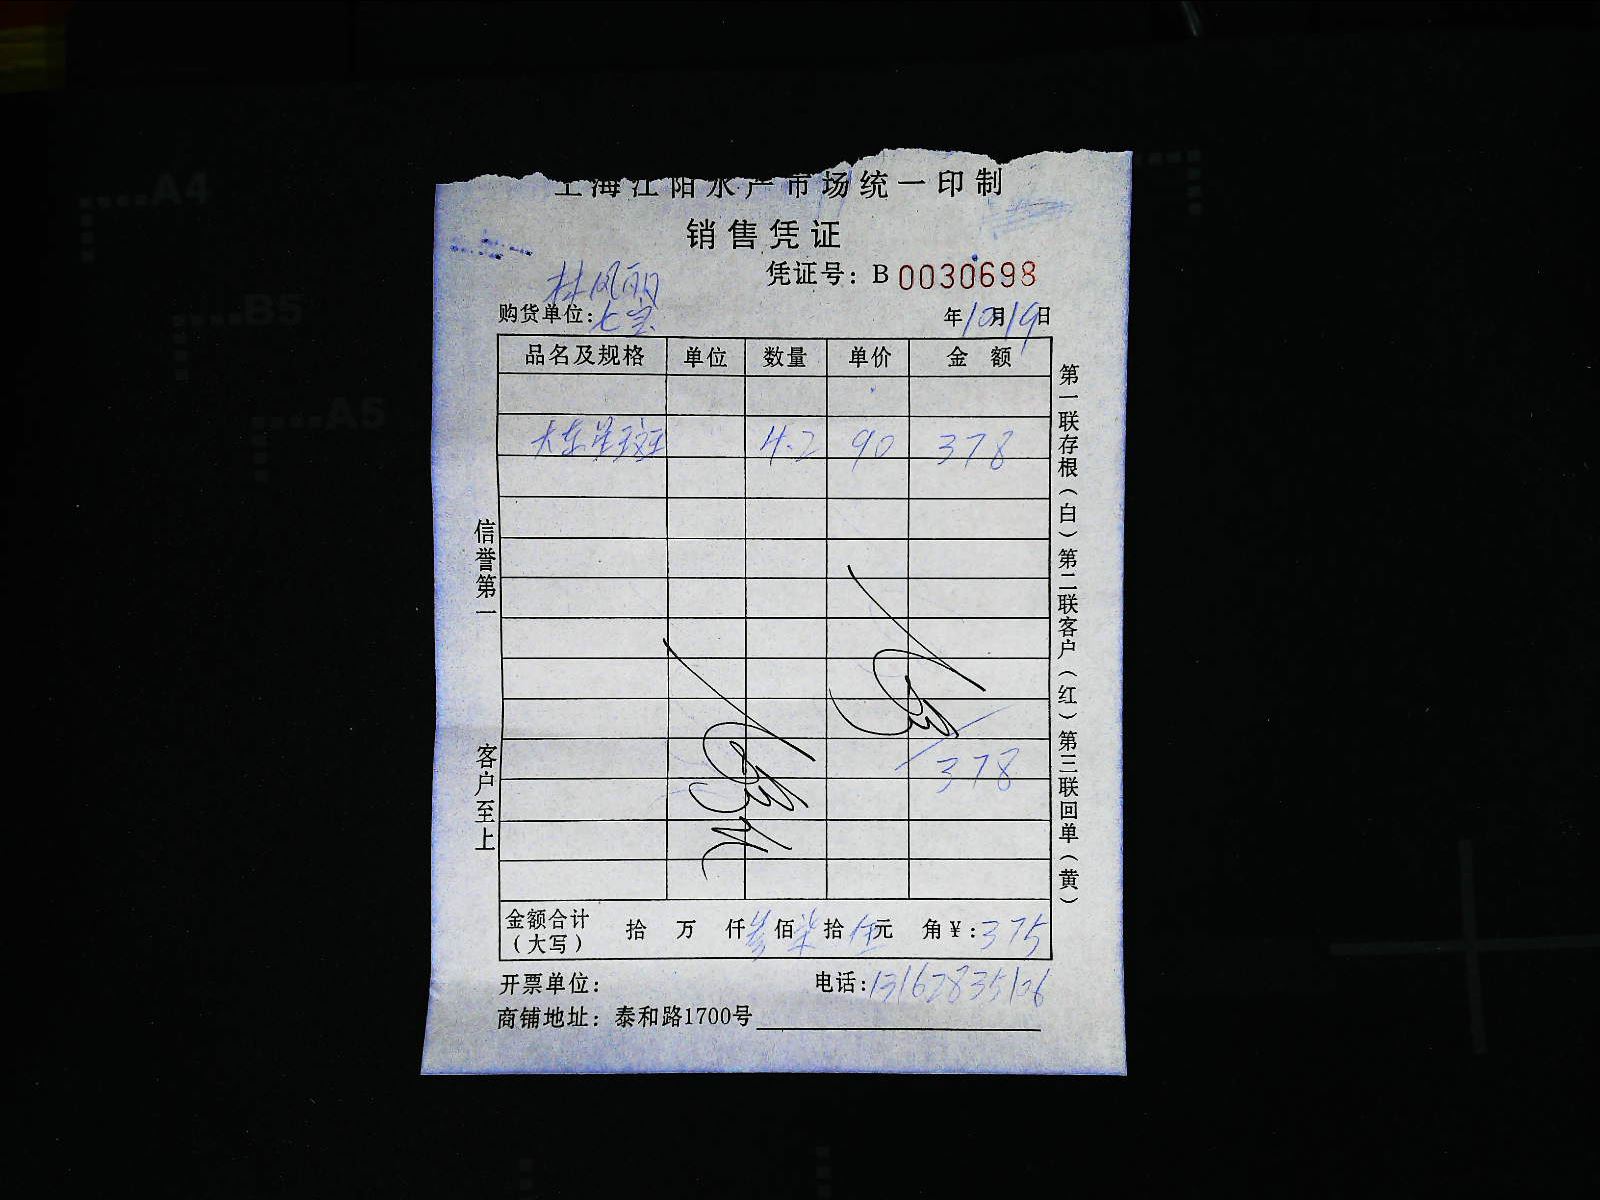 上海江阳水产市场统一印制
销售凭证
凭证号：B 0030698
林凤丽
购货单位：七宝 年10月19日
品名及规格 单位 数量 单价 金 额
大东星斑 4.2 90 378
378
金额合计（大写） 拾 万 仟 叁 佰 柒 拾 伍 元 角 ¥：375
开票单位： 电话：13162835106
商铺地址：泰和路1700号
信誉第一
客户至上
第一联存根（白）第二联客户（红）第三联回单（黄）
A4
B5
A5